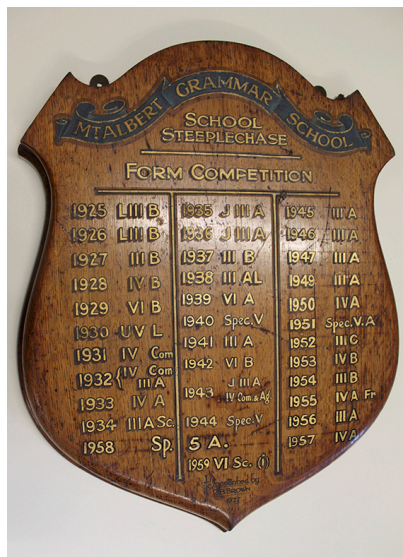 MT. ALBERT GRAMMAR SCHOOL
SCHOOL
STEEPLECHASE
FORM COMPETITION
1925 LIII B
1926 LIII B
1927 III B
1928 IV B
1929 VI B
1930 UV L
1931 IV Com
1932 { IV Com
III A
1933 IV A
1934 IIIA Sc.
1935 J III A
1936 J III A
1937 III B
1938 III AL
1939 VI A
1940 Spec. V
1941 III A
1942 VI B
1943 J III A
IV Com & Ag.
1944 Spec. V
1945 III A
1946 III A
1947 III A
1949 III A
1950 IV A
1951 Spec. V. A
1952 III C
1953 IV B
1954 III B
1955 IV A Fr
1956 III A
1957 IV A
1958 Sp. 5 A.
1959 VI Sc. (i)
by